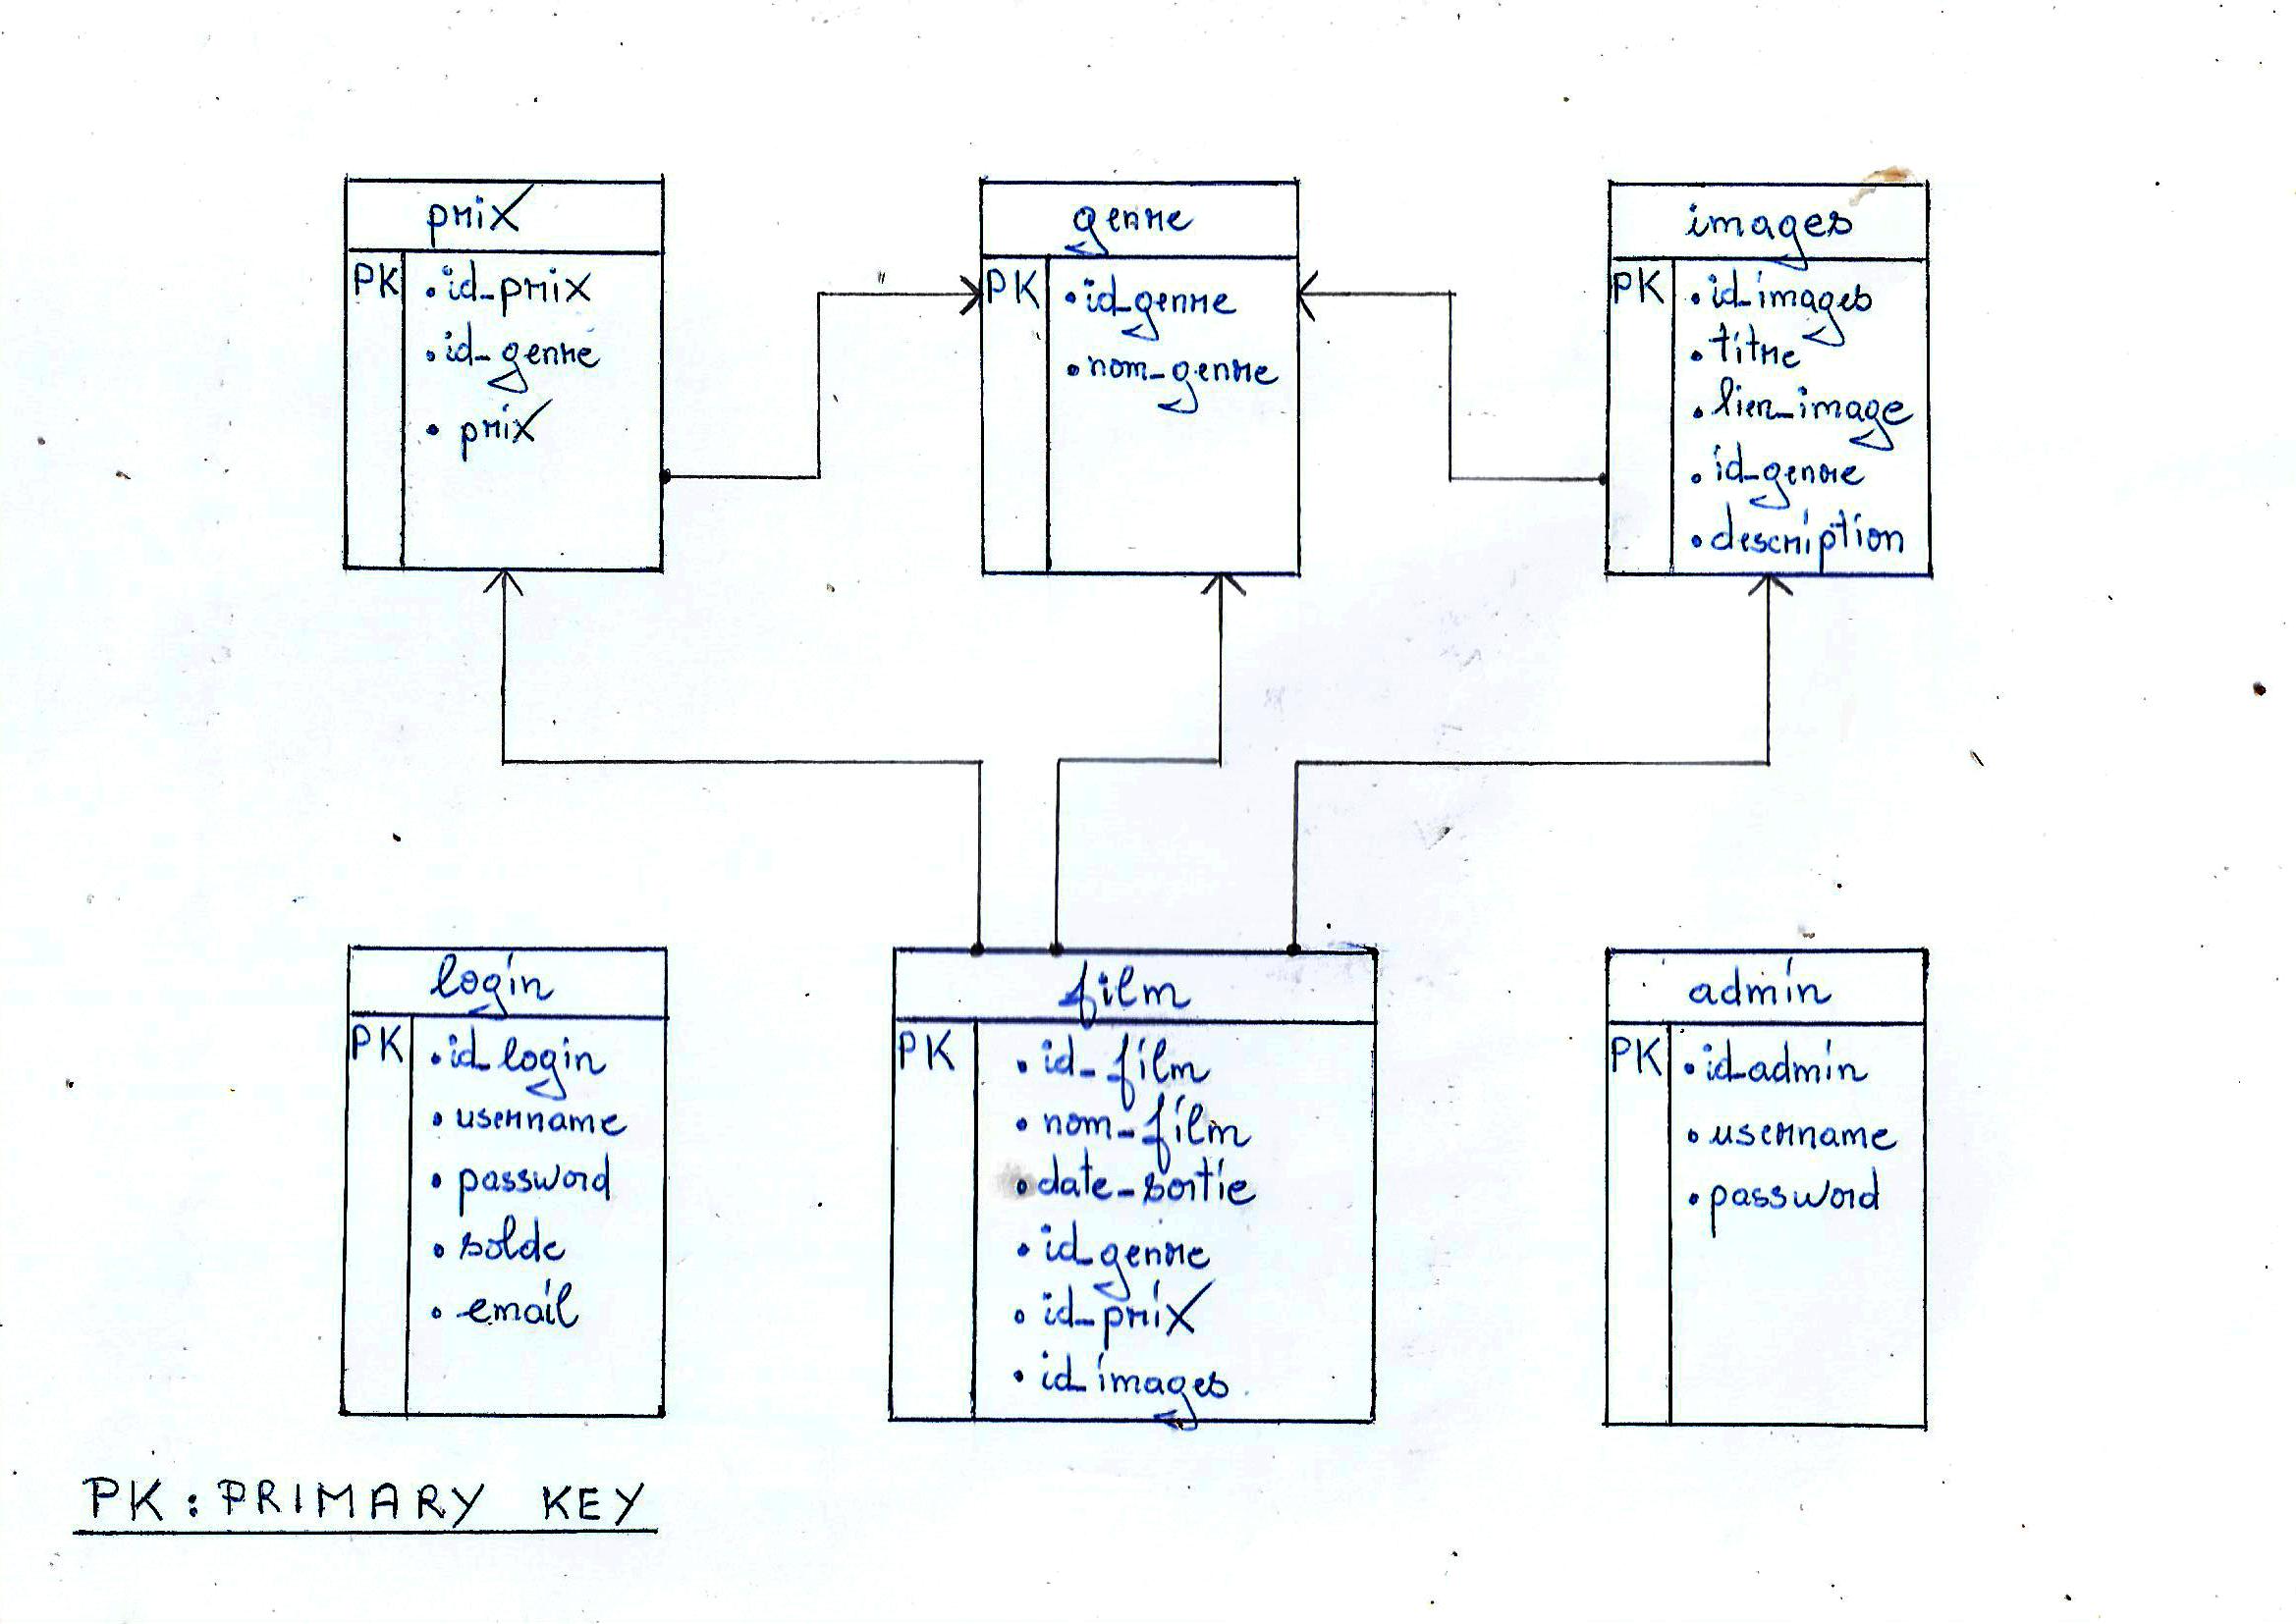 prix
PK
.id_prix
.id_genre
. prix
genre
PK
.id_genre
.nom_genre
images
PK
.id_images
.titre
.lien_image
.id_genre
.description
login
PK
.id_login
. username
. password
. solde
. email
film
PK
. id_film
. nom_film
. date_sortie
. id_genre
. id_prix
. id_images
admin
PK
.id_admin
. username
. password
PK : PRIMARY KEY